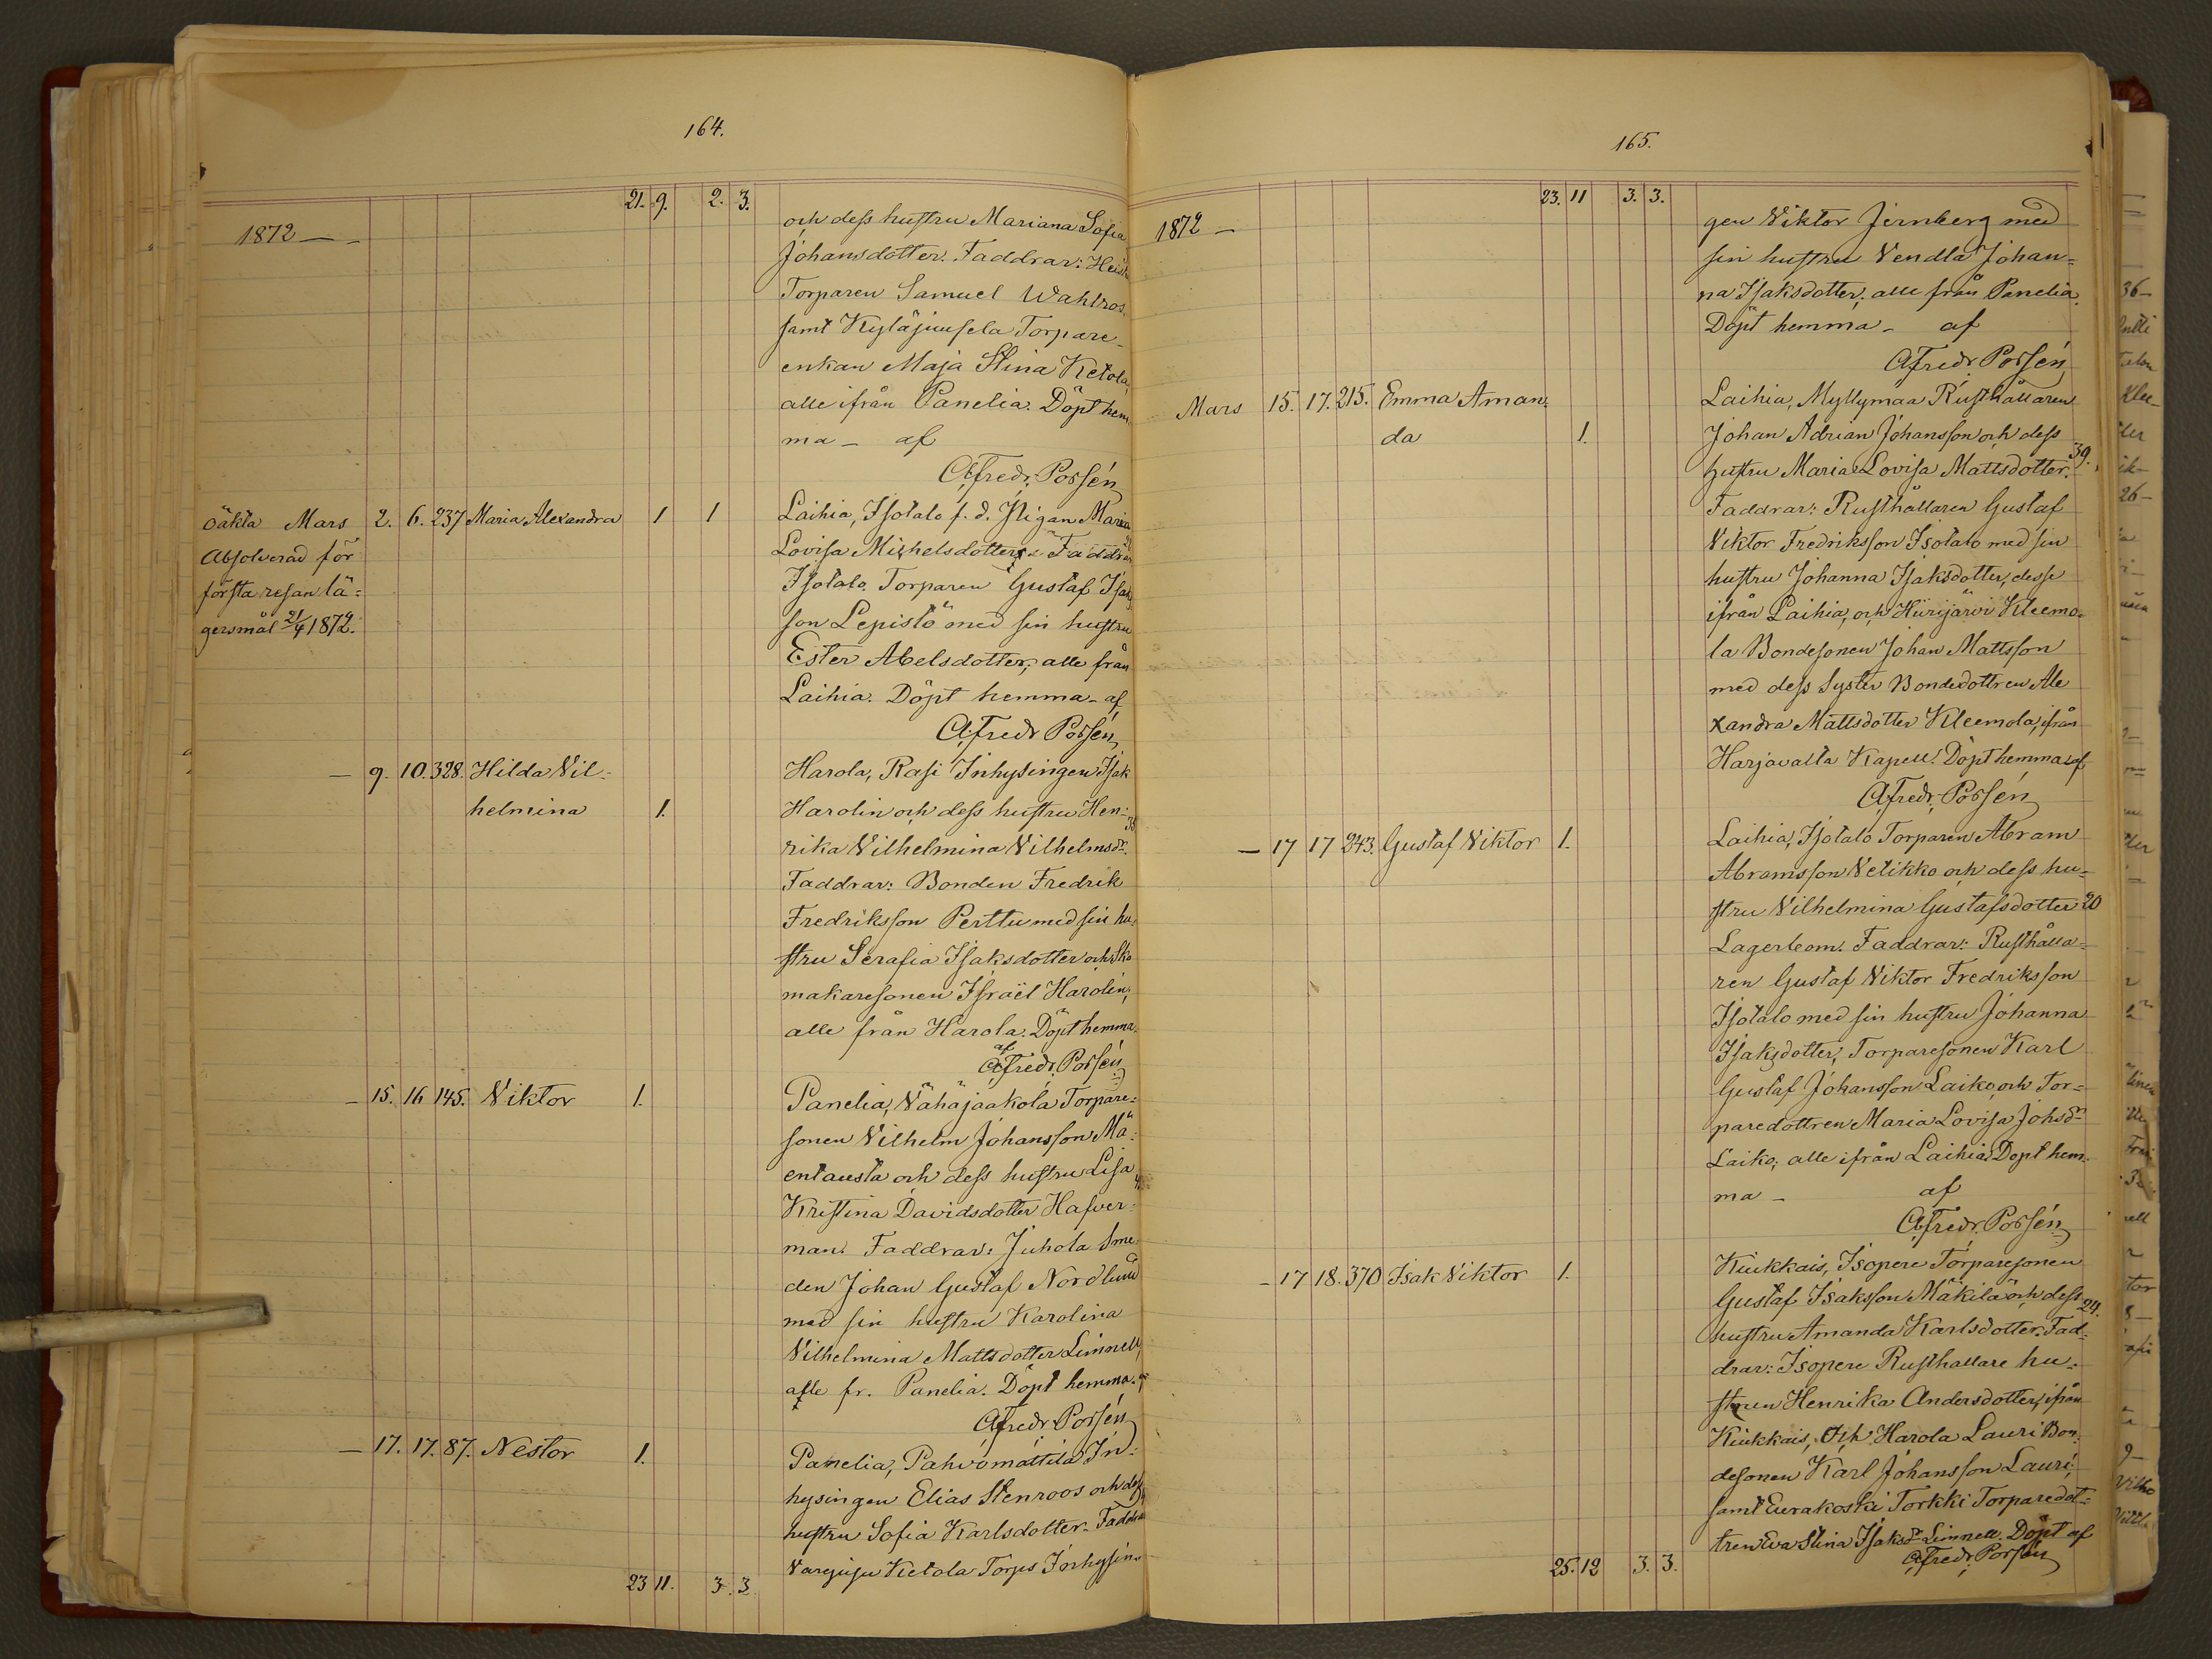 164.
21. 9. 2. 3.
1872 — -
och dess hustru Mariana Sofia
Johansdotter. Faddrar:
Torparen Samuel Wahlros
samt Kyläjuusela Torpare-
enkan Maja Stina Ketola,
alle ifrån Panelia. Döpt hem
ma - af
Afredr. Porsén
oäkta Mars 2. 6. 237 Maria Alexandra 1 1
Absolverad för
första resan lä=
gersmål 21/4 1872.
Laihia, Isotalo f. d. Pigan Maria
Lovisa Michelsdotter. Faddrar
Isotalo Torparen Gustaf Isaks
son Lepistö med sin hustru
Ester Abelsdotter, alle från
Laihia. Döpt hemma - af
Afredr Porsén
— 9. 10. 328. Hilda Vil=
helmina 1.
Harola, Rasi Inhysingen Isak
Harolin och dess hustru Hen= 38
rika Vilhelmina Vilhelmsdr.
Faddrar: Bonden Fredrik
Fredriksson Perttu med sin hu=
stru Serafia Isaksdotter och Sko
makaresonen Israël Harolin;
alle från Harola. Döpt hemma
af
Afredr. Porsén
— 15. 16 145. Viktor 1.
Panelia, Vähäjaakola Torpare=
sonen Vilhelm Johansson Mä=
entausta och dess hustru Lisa
Kristina Davidsdotter Hafver=
man. Faddrar: Juhola Sme=
den Johan Gustaf Nordlund
med sin hustru Karolina
Vilhelmina Mattsdotter Limnell,
alle fr. Panelia. Döpt hemma. af
Afredr Porsén
— 17. 17. 87. Nestor 1.
Panelia, Pahvomattila In=
hysingen Elias Stenroos och dess
hustru Sofia Karlsdotter. Faddrar
Ketola Torps Inhysin=
23 11. 3. 3.
165.
23. 11 3. 3.
1872 —
gen Viktor Jernberg med
sin hustru Vendla Johan=
na Isaksdotter, alle från Panelia.
Döpt hemma - af
Afredr Porsén
Mars 15. 17. 215. Emma Aman=
da 1.
Laihia, Myllymaa Rusthållaren
Johan Adrian Johansson och dess
hustru Maria Lovisa Mattsdotter. 39.
Faddrar: Rusthållaren Gustaf
Viktor Fredriksson Isotalo med sin
hustru Johanna Isaksdotter, desse
ifrån Laihia, och Hiirijärvi Kleemo=
la Bondesonen Johan Mattsson
med dess Syster Bondedottren Ale
xandra Mattsdotter Kleemola, ifrån
Harjavalta Kapell. Döpt hemma af
Afredr. Porsén
— 17 17 243. Gustaf Viktor 1.
Laihia, Isotalo Torparen Abram
Abramsson Vetikko och dess hu=
stru Vilhelmina Gustafsdotter 20
Lagerbom. Faddrar: Rusthålla=
ren Gustaf Viktor Fredriksson
Isotalo med sin hustru Johanna
Isaksdotter, Torparesonen Karl
Gustaf Johansson Laiko, och Tor=
paredottren Maria Lovisa Johsdr
Laiko; alle ifrån Laihia. Döpt hem=
ma - af
Afredr. Porsén
— 17 18. 370 Isak Viktor 1.
Kiukkais, Isopere Torparesonen
Gustaf Isaksson Mäkilä och dess 24.
hustru Amanda Karlsdotter. Fad=
drar: Isopere Rusthållare hu=
strun Henrika Andersdotter, ifrån
Kiukkais, Och Harola Lauri Bon=
desonen Karl Johansson Lauri;
samt Eurakoski Torkki Torparedot=
tren Eva Stina Isaksdr Limnell. Döpt af
Afredr. Porsén
25. 12 3. 3.